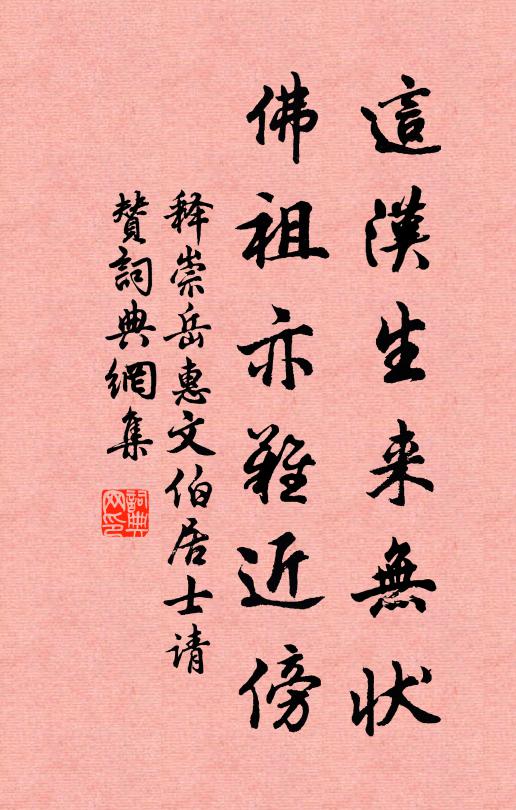 這漢生来無状
佛祖亦難近傍
释崇岳惠文伯居士请
贊詞典網集
詞典網印